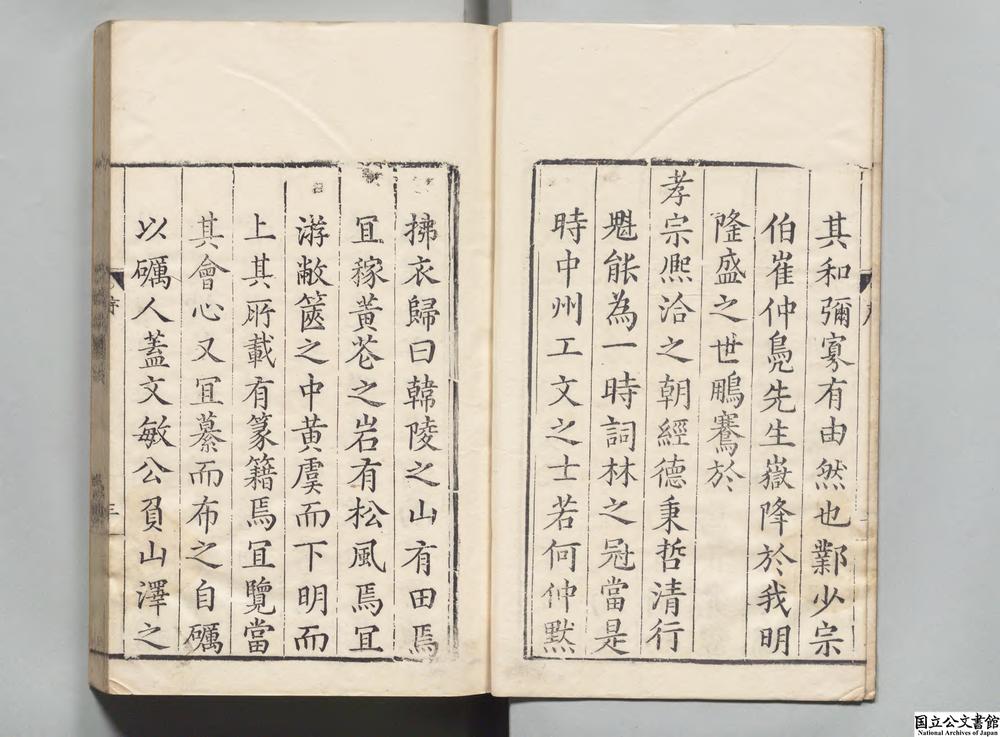 其和彌寡有由然也鄴少宗
伯崔仲鳬先生嶽降於我明
隆盛之世鵬騫於
孝宗熈洽之朝經德秉哲清行
㒱能為一時詞林之冠當是
時中州工文之士若何仲默
拂衣歸曰韓陵之山有田焉
冝稼黃芲之岩有松風焉冝
游敝篋之中黃虞而下明而
上其所載有篆籍焉冝覽當
其會心又冝纂而布之自礪
以礪人蓋文敏公負山澤之
序
三
国立公文書館
National Archives of Japan